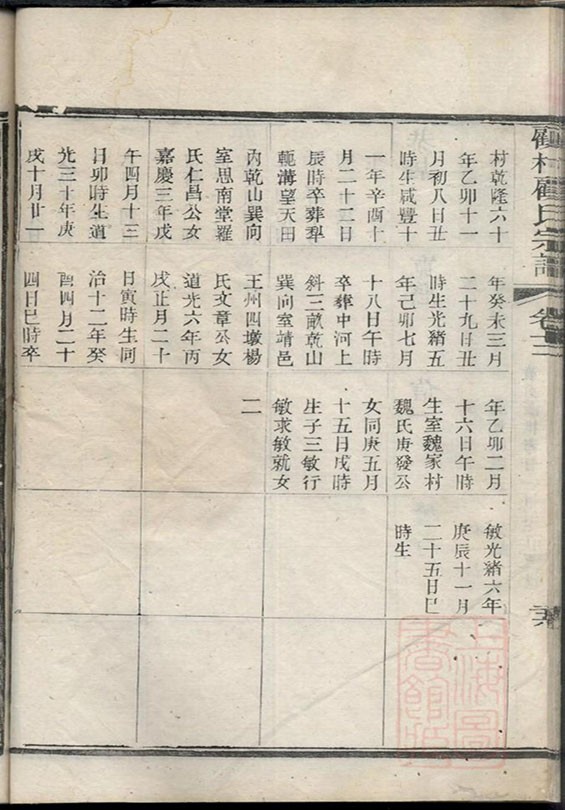 村乾隆六十
年乙卯十一
月初八日丑
時生咸豐十
一年辛酉十
月二十二日
辰時卒葬犁
軛溝望天田
內乾山巽向
室思南堂羅
氏仁昌公女
嘉慶三年戊
午四月十三
日卯時生道
光三十年庚
戌十月廿一
年癸未三月
二十九日丑
時生光緒五
年己卯七月
十八日午時
卒葬中河上
斜三畝乾山
巽向室靖邑
王州四墩楊
氏文章公女
道光六年丙
戌正月二十
日寅時生同
治十二年癸
酉四月二十
四日巳時卒
年乙卯二月
十六日午時
生室魏家村
魏氏庚發公
女同庚五月
十五日戌時
生子三敏行
敏求敏就女
二
敏光緒六年
庚辰十一月
二十五日巳
時生
村顧氏宗譜
卷
上海圖書館藏